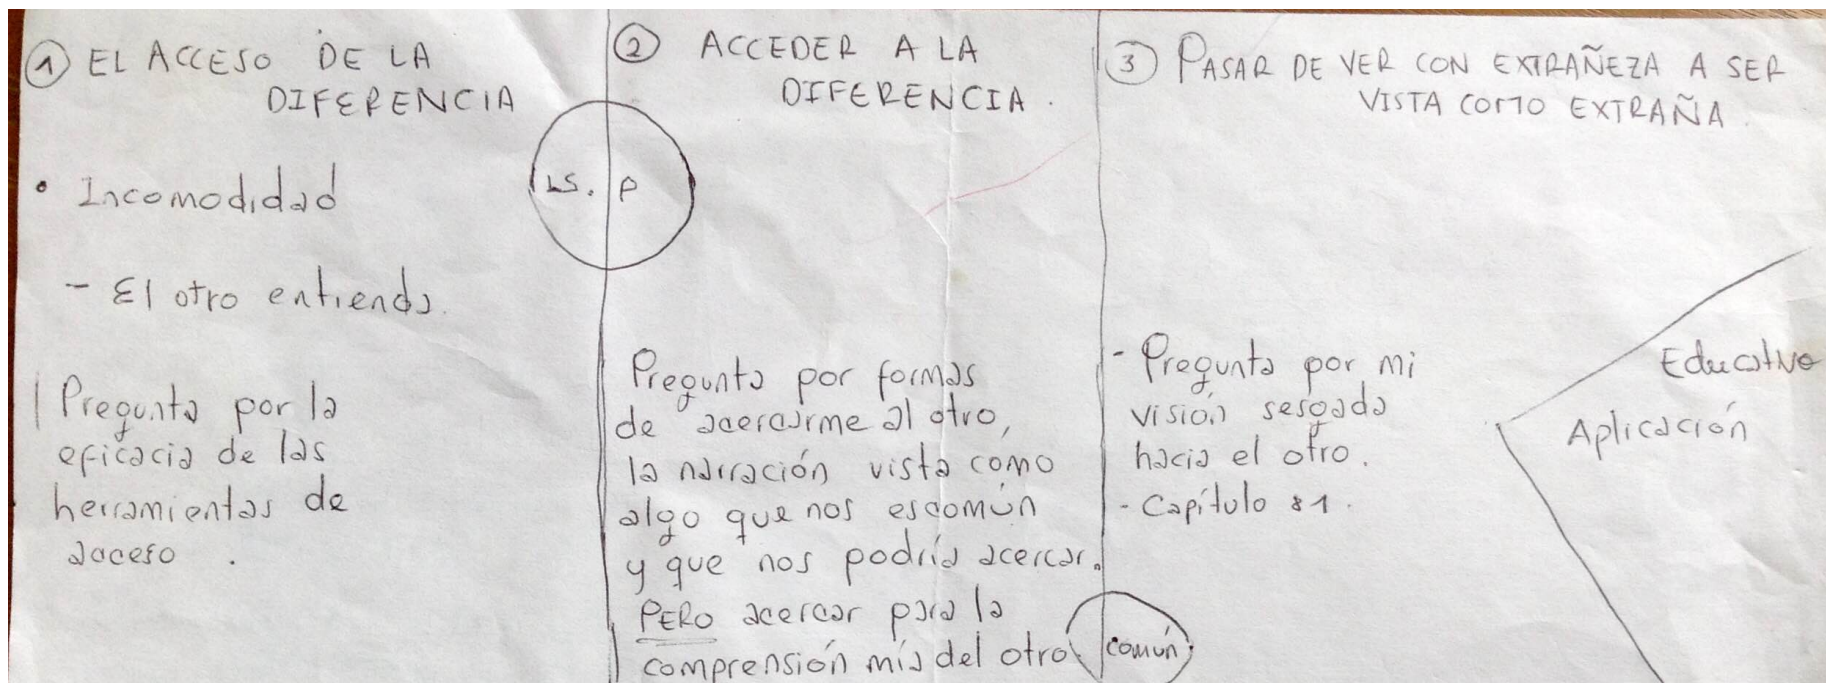 1 EL ACCESO DE LA
DIFERENCIA
• Incomodidad
- El otro entienda.
Pregunta por la
eficacia de las
herramientas de
acceso.
LS. P
2 ACCEDER A LA
DIFERENCIA.
Pregunta por formas
de acercarme al otro,
la narración vista como
algo que nos es común
y que nos podría acercar.
PERO acercar para la
comprensión mía del otro
común
3 PASAR DE VER CON EXTRAÑEZA A SER
VISTA COMO EXTRAÑA.
- Pregunta por mi
visión sesgada
hacia el otro.
- Capítulo 81.
Educativo
Aplicación